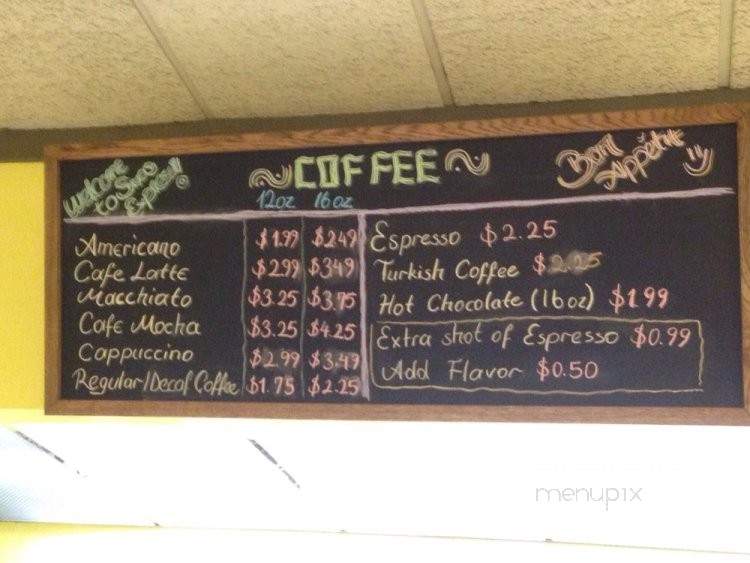 Welcome to Syco Espress!
COFFEE
Bont Appétit
12oz 16oz
Americano $1.99 $2.49
Cafe Latte $2.99 $3.49
Macchiato $3.25 $3.75
Cafe Mocha $3.25 $4.25
Cappuccino $2.99 $3.49
Regular/Decaf Coffee $1.75 $2.25
Espresso $2.25
Turkish Coffee $2.25
Hot Chocolate (16oz) $1.99
Extra shot of Espresso $0.99
Add Flavor $0.50
menupix